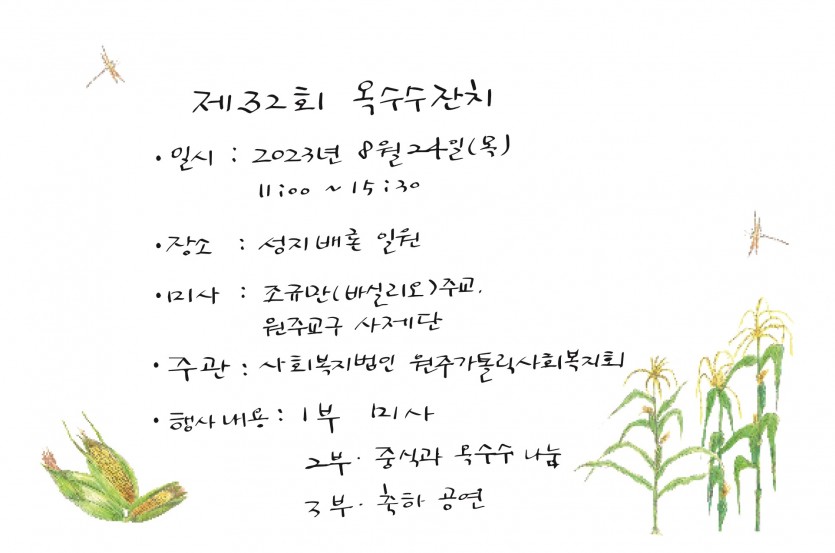 제32회 옥수수잔치
· 일시 : 2023년 8월 24일(목)
11:00 ~ 15:30
· 장소 : 성지배론 일원
· 미사 : 조규만(바실리오)주교,
원주교구 사제단
· 주관 : 사회복지법인 원주가톨릭사회복지회
· 행사내용 : 1부 미사
2부 · 중식과 옥수수 나눔
3부 · 축하 공연